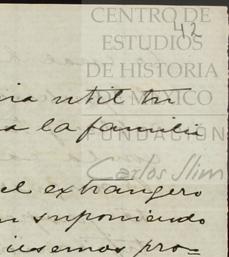 CENTRO DE
42
ESTUDIOS
DE HISTORIA
DE MÉXICO
ria util tu
a la famili
FUNDACIÓN
Carlos Slim
el extrangero
suponiendo
semos pro-